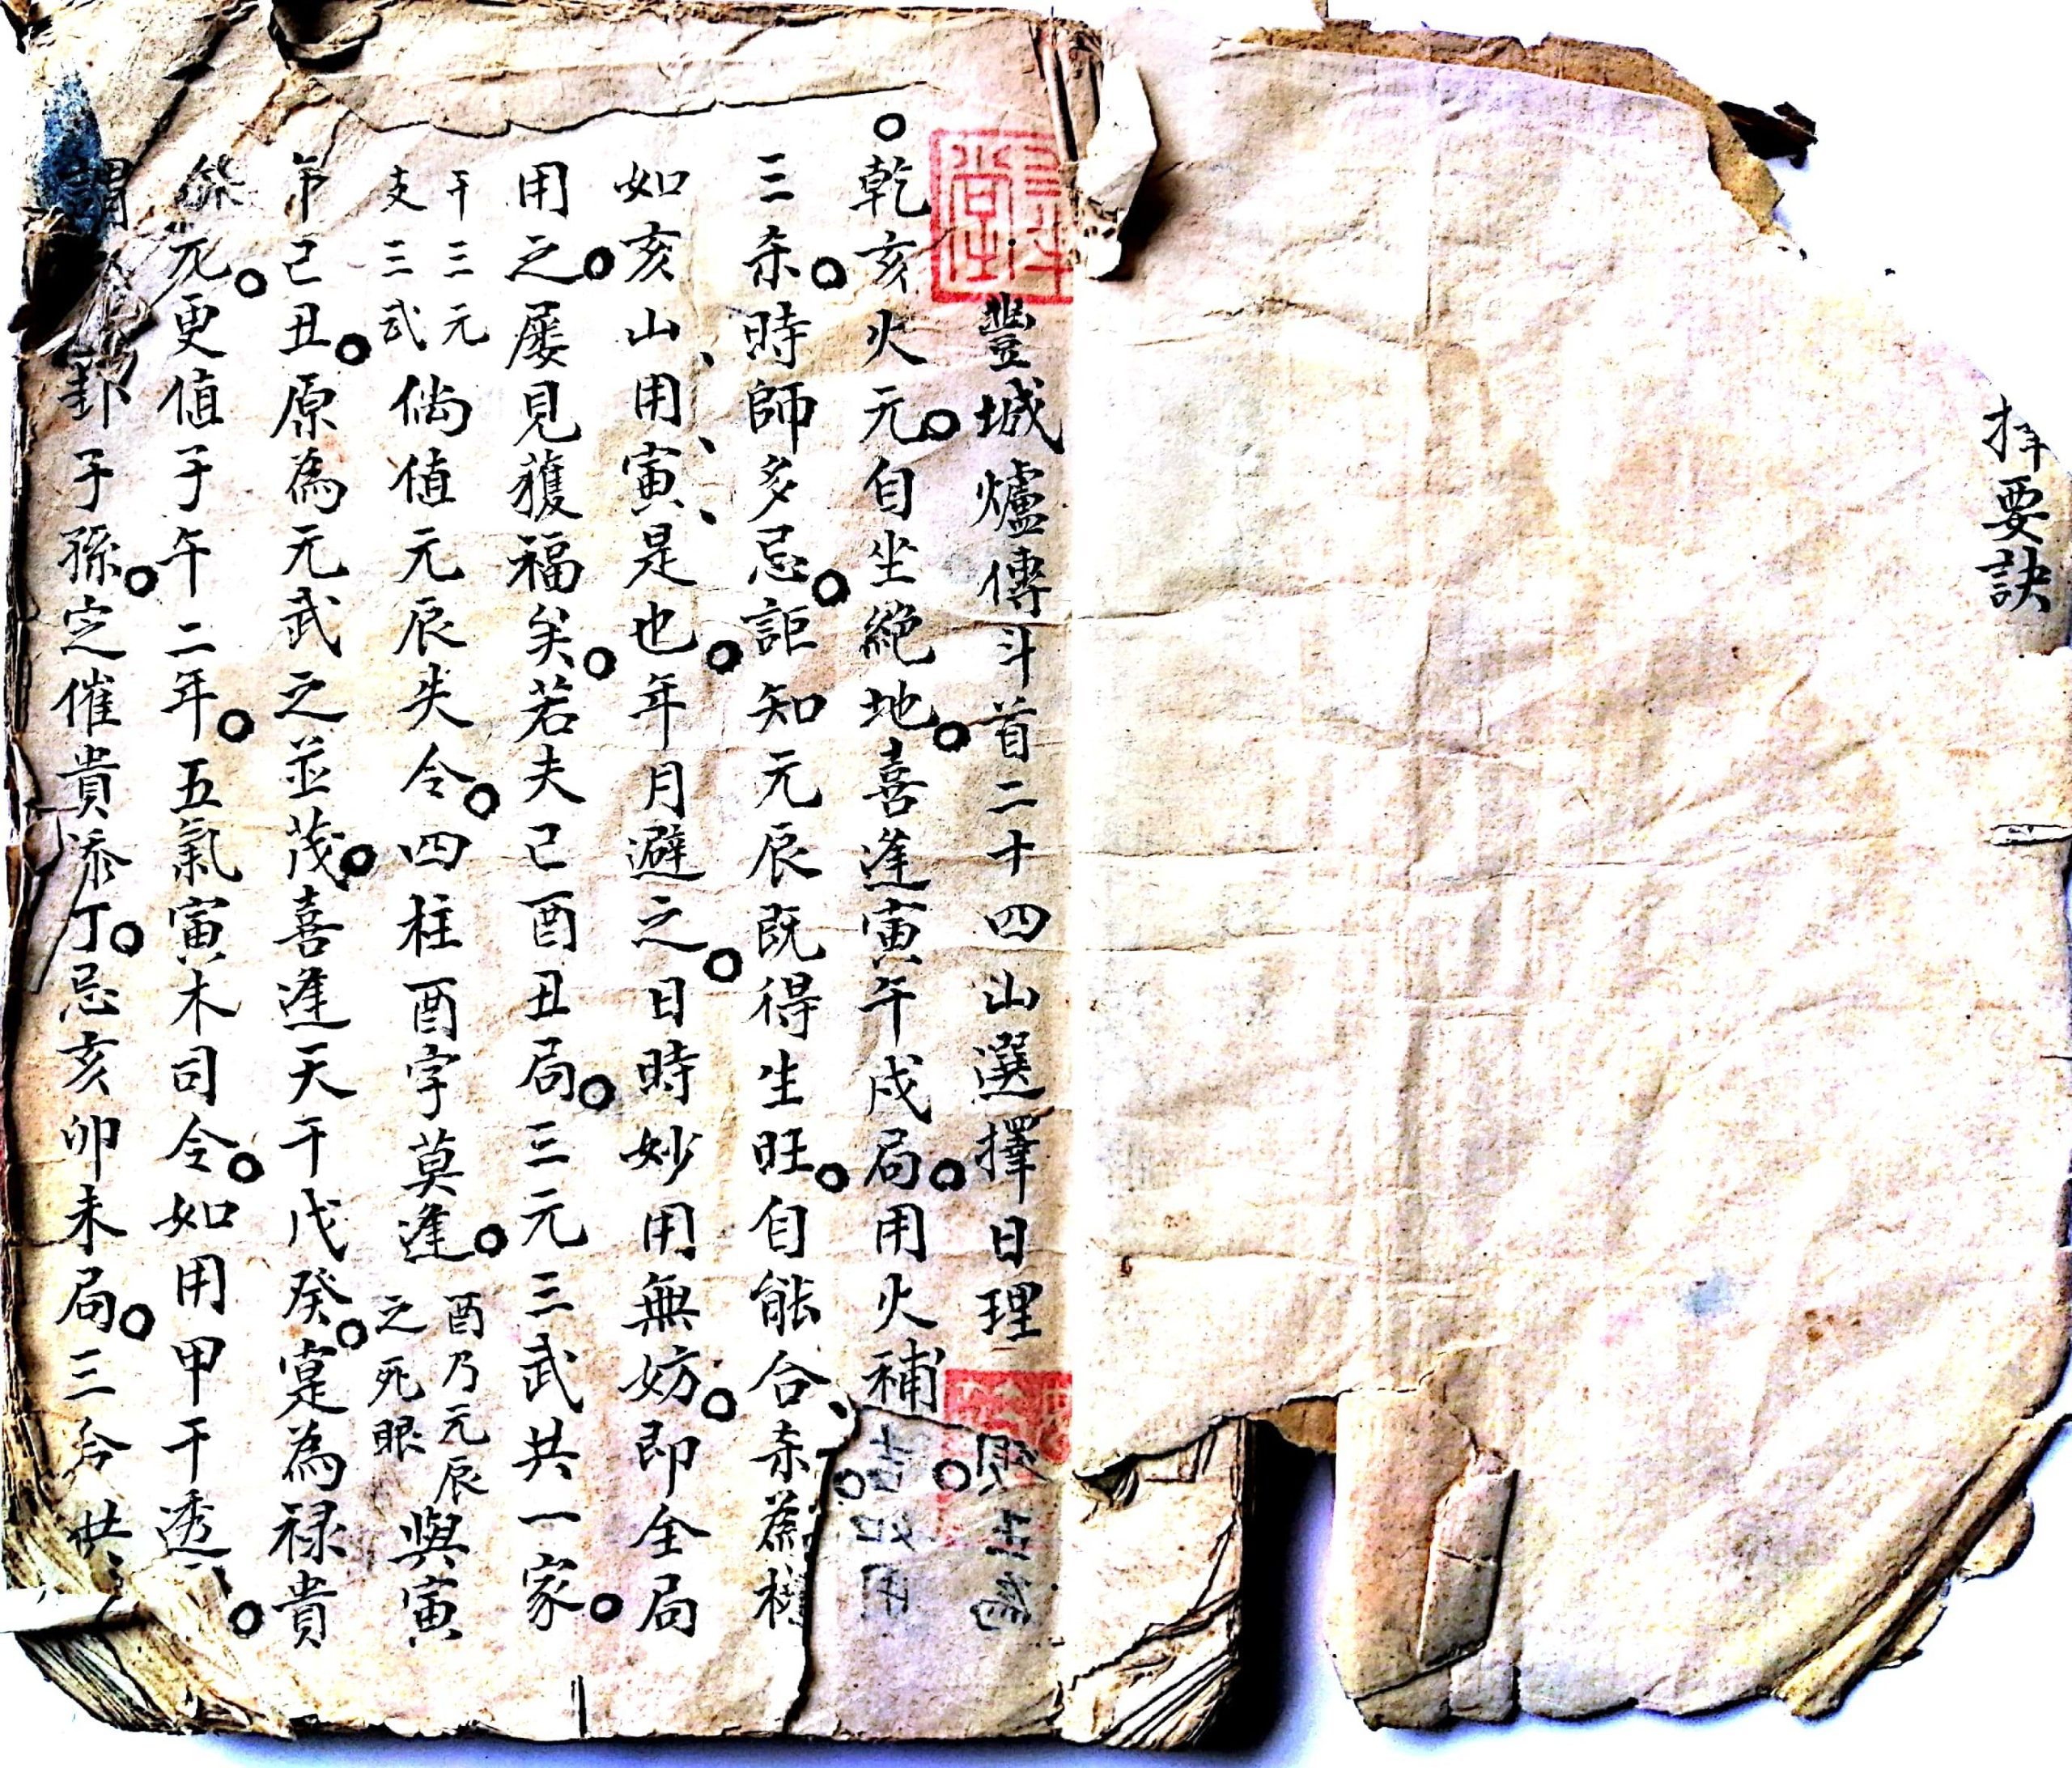 擇要訣
豐城爐傳斗首二十四山選擇日理
乾亥火元。自坐絕地。喜逢寅午戌局。用火補
三杀。時師多忌。詎知元辰既得生旺。自能合杀為權
如亥山用寅是也。年月避之。日時妙用無妨。即全局
用之。屡見獲福矣。若夫己酉丑局。三元三武共一家。
干三元
支三武
倘值元辰失令。四柱酉字莫逢。
酉乃元辰
之死眼
與寅
己丑。原為元武之並茂。喜逢天干戊癸。寔為禄貴
元。更值子午二年。五氣寅木司令。如用甲干透
卦子孫。定催貴添丁。忌亥卯未局。三合